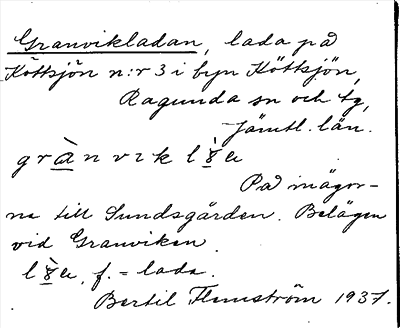 Granvikladan, lada på
Köttsjön n:r 3 i byn Köttsjön,
Ragunda sn och tg,
Jämtl. län.
grànvik l
På mägor-
na till Sundsgården. Belägen
vid Granviken.
f. = lada.
Bertil Flemström 1937.